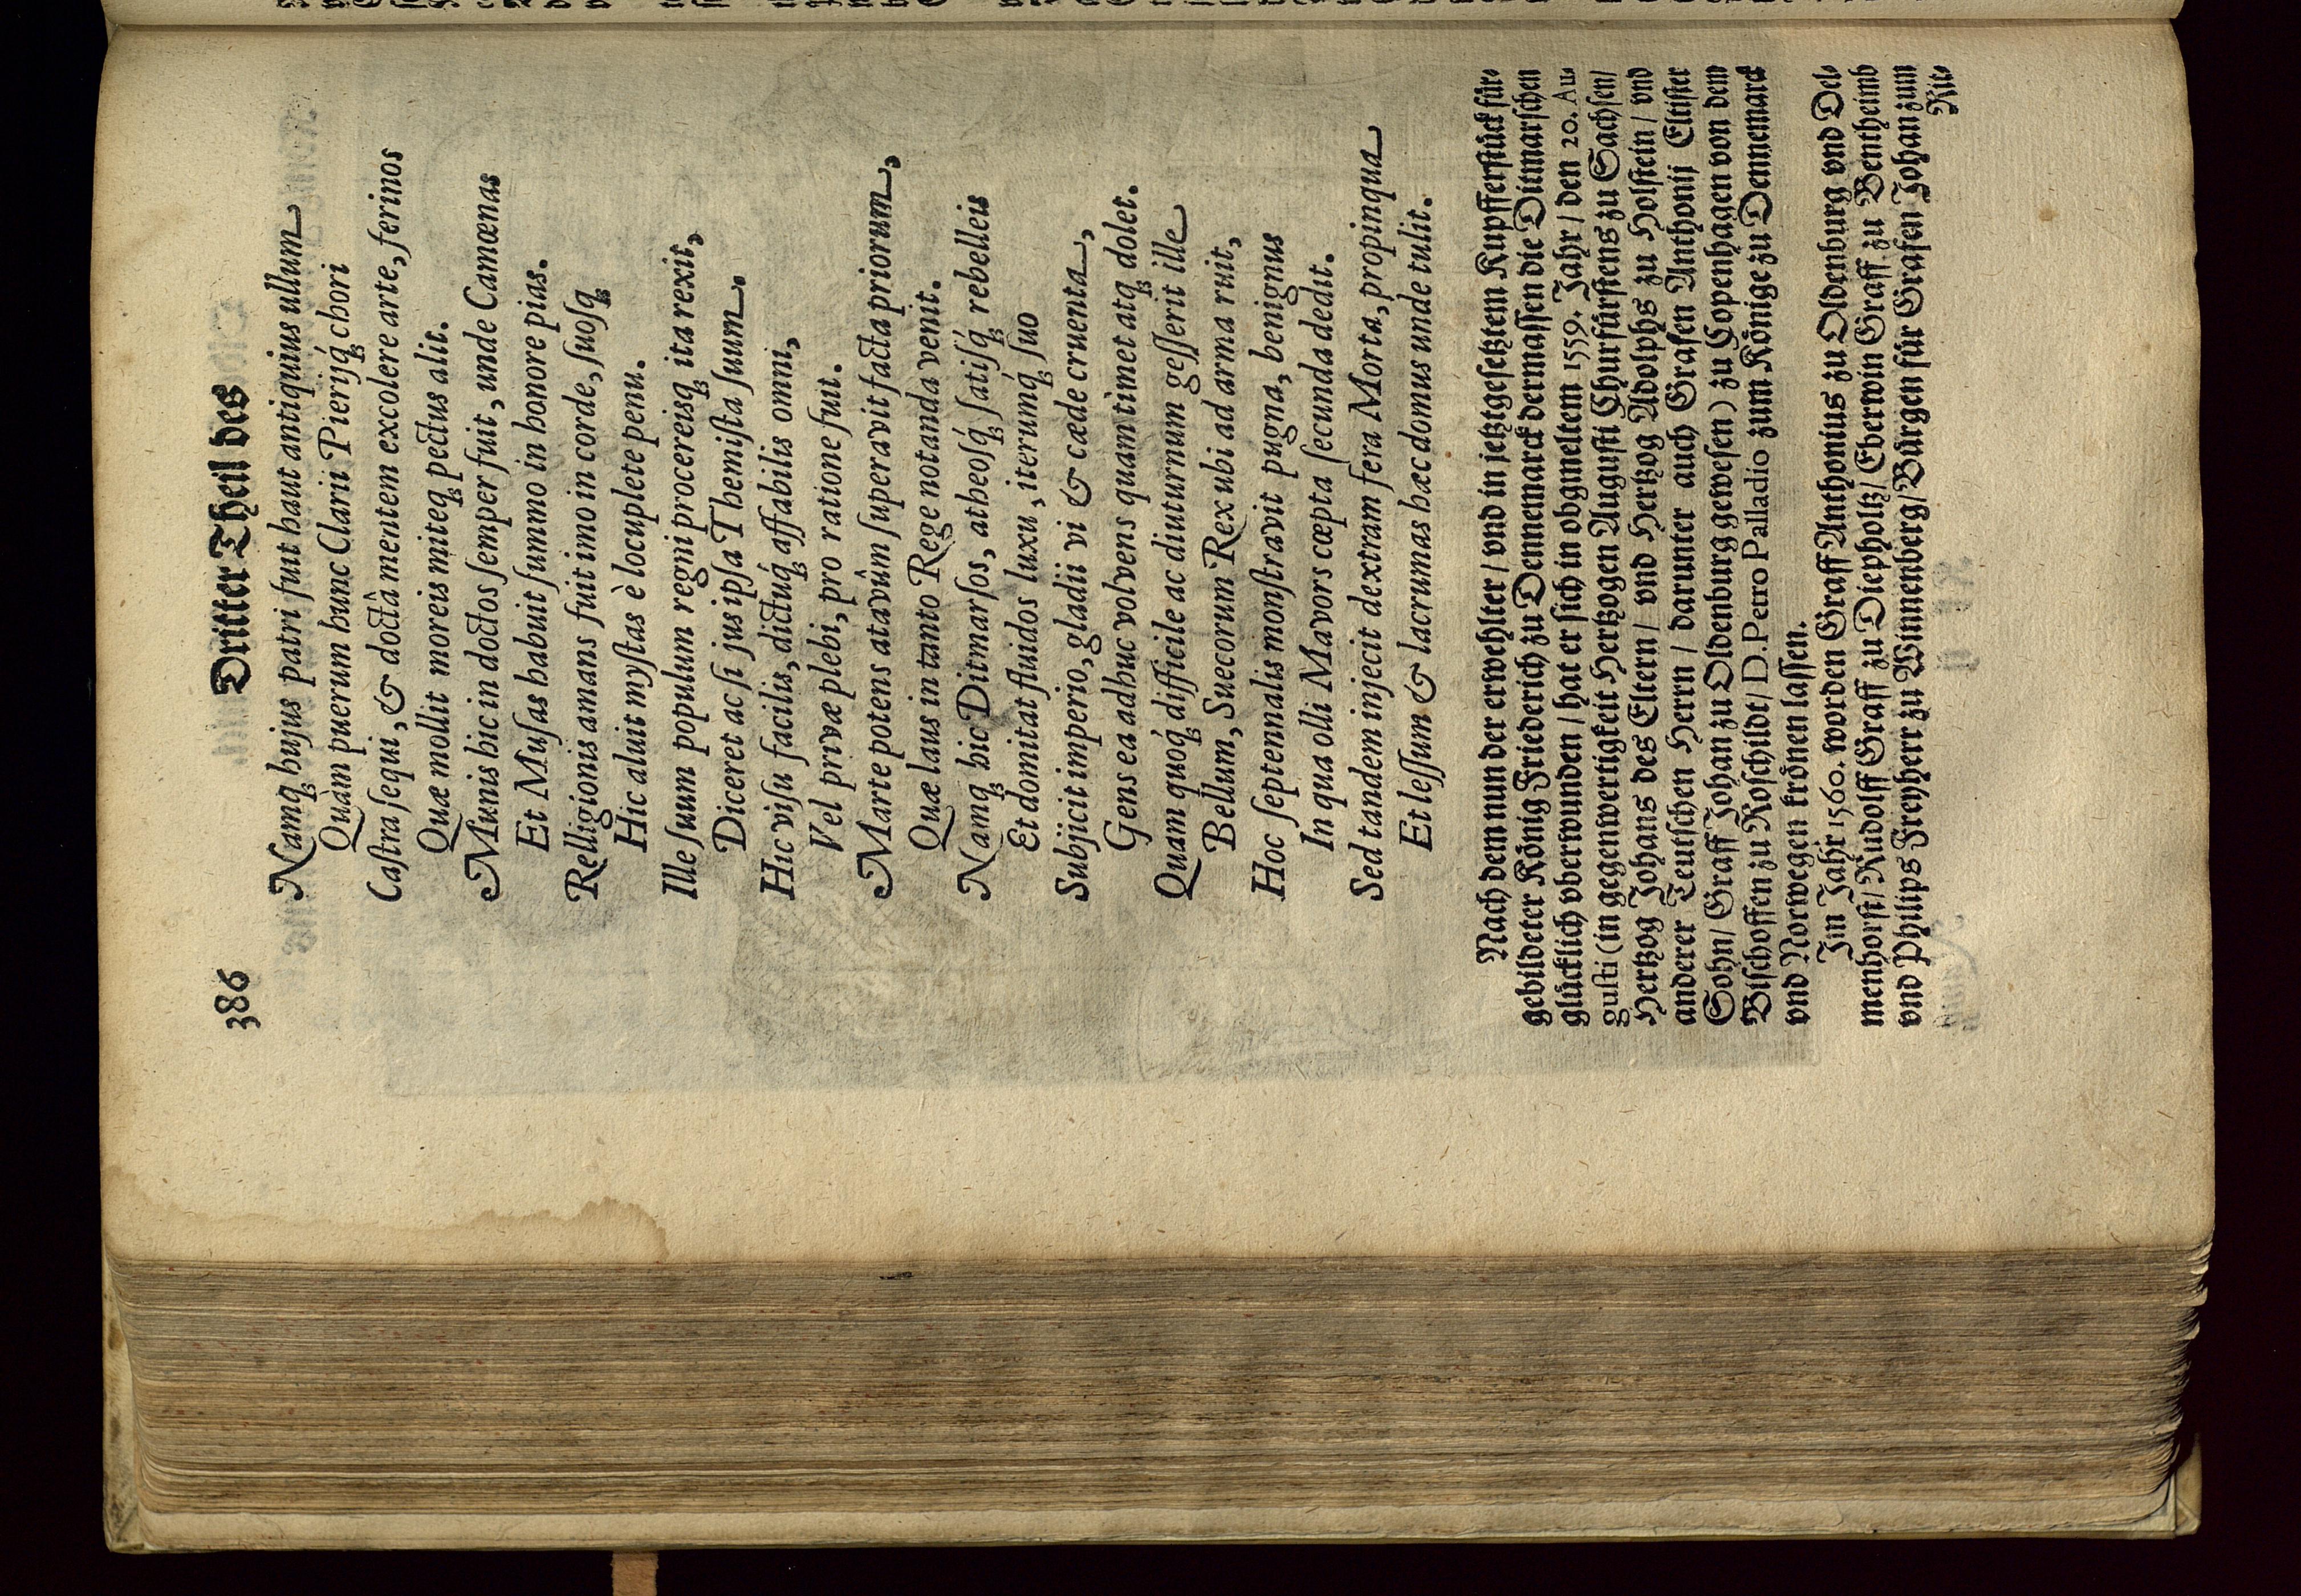 386 Dritter Theil des
Namq́ɜ hujus patri fuit haut antiquius ullum
Quàm puerum hunc Clarii Pierijq́ɜ chori
Caſtra ſequi, & doctâ mentem excolere arte, ferinos
Quæ mollit moreis miteqɜ pectus alit.
Munis hic in doctos ſemper fuit, unde Camœnas
Et Muſas habuit ſummo in honore pias.
Relligionis amans fuit imo in corde, ſuoſqɜ
Hic aluit myſtas è locuplete penu.
Ille ſuum populum regni procereisqɜ ita rexit,
Diceret ac ſi jus ipſa Themiſta ſuum.
Hic viſu facilis, dictuq́ɜ affabilis omni,
Vel privæ plebi, pro ratione fuit.
Marte potens atavûm ſuperavit facta priorum,
Quæ laus in tanto Rege notanda venit.
Namqɜ hic Ditmarſos, atheoſq́ɜ ſatiſq́ɜ rebelleis
Et domitat fluidos luxu, iterumq́ɜ ſuo
Subjicit imperio, gladii vi & cæde cruenta,
Gens ea adhuc volvens quam timet atqɜ dolet.
Quam quoq́ɜ difficile ac diuturnum geſſerit ille
Bellum, Suecorum Rex ubi ad arma ruit,
Hoc ſeptennalis monſtravit pugna, benignus
In qua olli Mavors cœpta ſecunda dedit.
Sed tandem injecit dextram fera Morta, propinqua
Et leſſum & lacrumas hæc domus unde tulit.
Nach dem nun der erwehlter / vnd in jetztgeſetztem Kupfferſtück für-
gebildeter König Friederich zu Dennemarck dermaſſen die Ditmarſchen
glücklich vberwunden / hat er ſich in obgmeltem 1559. Jahr / den 20. Au-
guſti (in gegenwertigkeit Hertzogen Auguſti Churfürſtens zu Sachſen/
Hertzog Johans des Eltern / vnd Hertzog Adolphs zu Holſtein / vnd
anderer Teutſchen Herrn / darunter auch Grafen Anthonij Eltiſter
Sohn/ Graff Johan zu Oldenburg geweſen) zu Copenhagen von dem
Biſchoffen zu Roſchildt/ D. Petro Palladio zum Könige zu Dennemarck
vnd Norwegen krönen laſſen.
Im Jahr 1560. worden Graff Anthonius zu Oldenburg vnd Del-
menhorſt/ Rudolff Graff zu Diepholtz/ Eberwin Graff zu Bentheimb
vnd Philips Freyherr zu Winnenberg/ Bürgen für Grafen Johan zum
Rit-